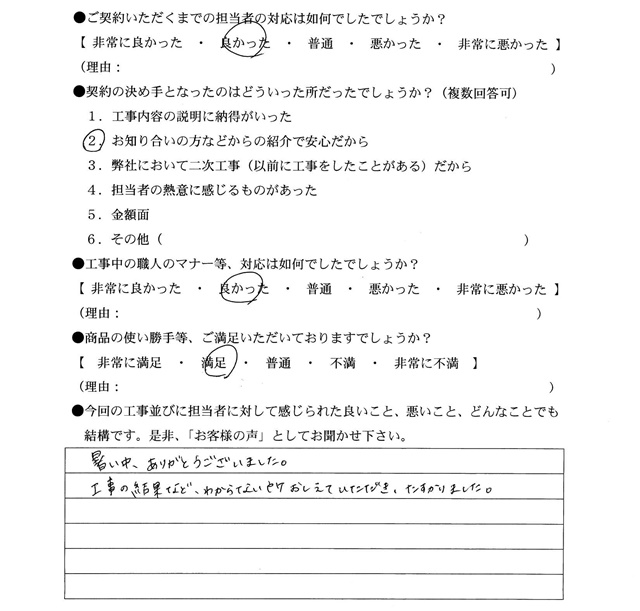 ●ご契約いただくまでの担当者の対応は如何でしたでしょうか？
【 非常に良かった ・ 良かった ・ 普通 ・ 悪かった ・ 非常に悪かった 】
（理由： ）
●契約の決め手となったのはどういった所だったでしょうか？（複数回答可）
１．工事内容の説明に納得がいった
２．お知り合いの方などからの紹介で安心だから
３．弊社において二次工事（以前に工事をしたことがある）だから
４．担当者の熱意に感じるものがあった
５．金額面
６．その他（ ）
●工事中の職人のマナー等、対応は如何でしたでしょうか？
【 非常に良かった ・ 良かった ・ 普通 ・ 悪かった ・ 非常に悪かった 】
（理由： ）
●商品の使い勝手等、ご満足いただいておりますでしょうか？
【 非常に満足 ・ 満足 ・ 普通 ・ 不満 ・ 非常に不満 】
（理由： ）
●今回の工事並びに担当者に対して感じられた良いこと、悪いこと、どんなことでも
結構です。是非、「お客様の声」としてお聞かせ下さい。
暑い中、ありがとうございました。
工事の結果など、わからない おしえていただき、たすかりました。